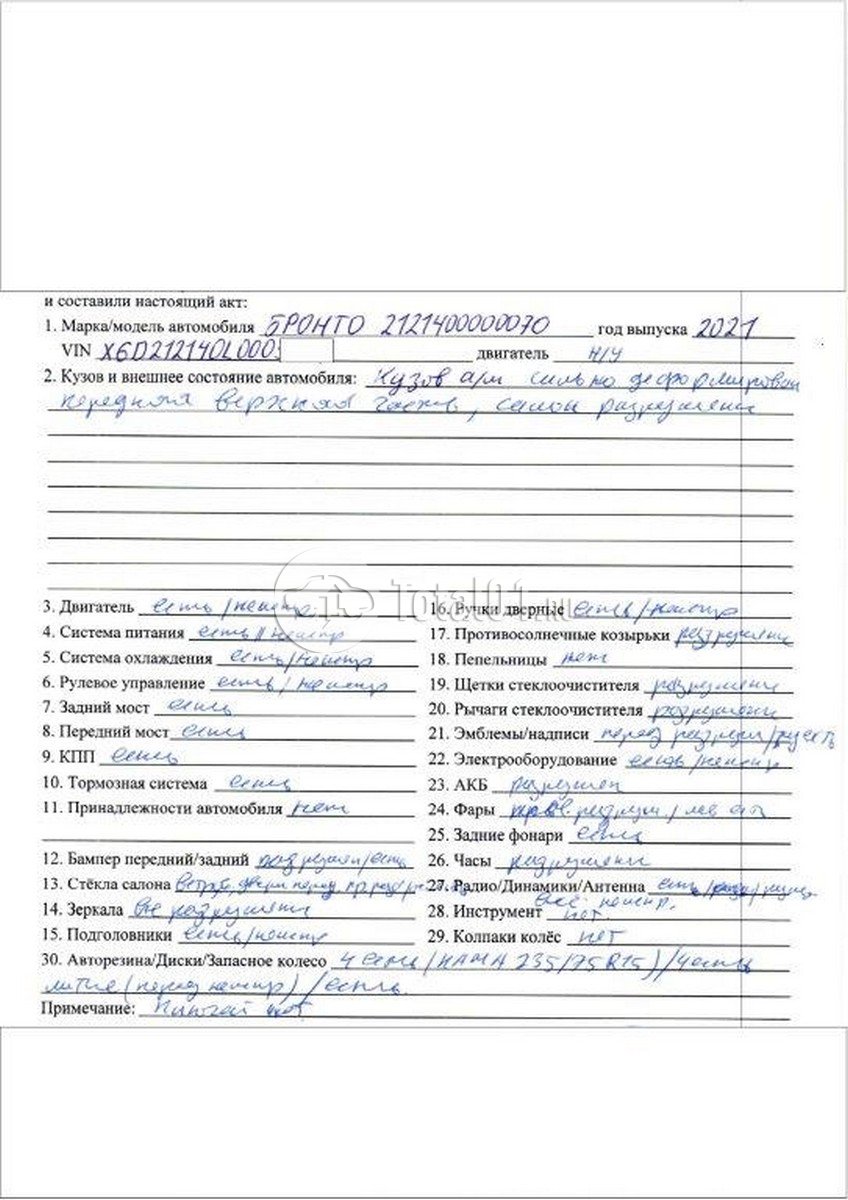 и составили настоящий акт:
1. Марка/модель автомобиля БРОНТО 2121400000070 год выпуска 2021
VIN X6D212140L000 двигатель Н/У
2. Кузов и внешнее состояние автомобиля: Кузов а/м сильно деформирован
передняя верхняя часть, салон разрушен
Total01.ru
3. Двигатель есть/неиспр
4. Система питания есть/неиспр
5. Система охлаждения есть/неиспр
6. Рулевое управление есть/неиспр
7. Задний мост есть
8. Передний мост есть
9. КПП есть
10. Тормозная система есть
11. Принадлежности автомобиля нет
12. Бампер передний/задний разрушен/есть
13. Стёкла салона
14. Зеркала все разрушены
15. Подголовники есть/неиспр
16. Ручки дверные есть/неиспр
17. Противосолнечные козырьки разрушены
18. Пепельницы нет
19. Щетки стеклоочистителя разрушены
20. Рычаги стеклоочистителя разрушены
21. Эмблемы/надписи перед разруш/
22. Электрооборудование есть/неиспр
23. АКБ разрушен
24. Фары прав разруш/лев есть
25. Задние фонари есть
26. Часы разрушены
27. Радио/Динамики/Антенна есть/
всё неиспр.
28. Инструмент нет.
29. Колпаки колёс нет
30. Авторезина/Диски/Запасное колесо 4 есть (КАМА 235/75 R15)/4 есть
литые (перед неиспр)/есть
Примечание: нет